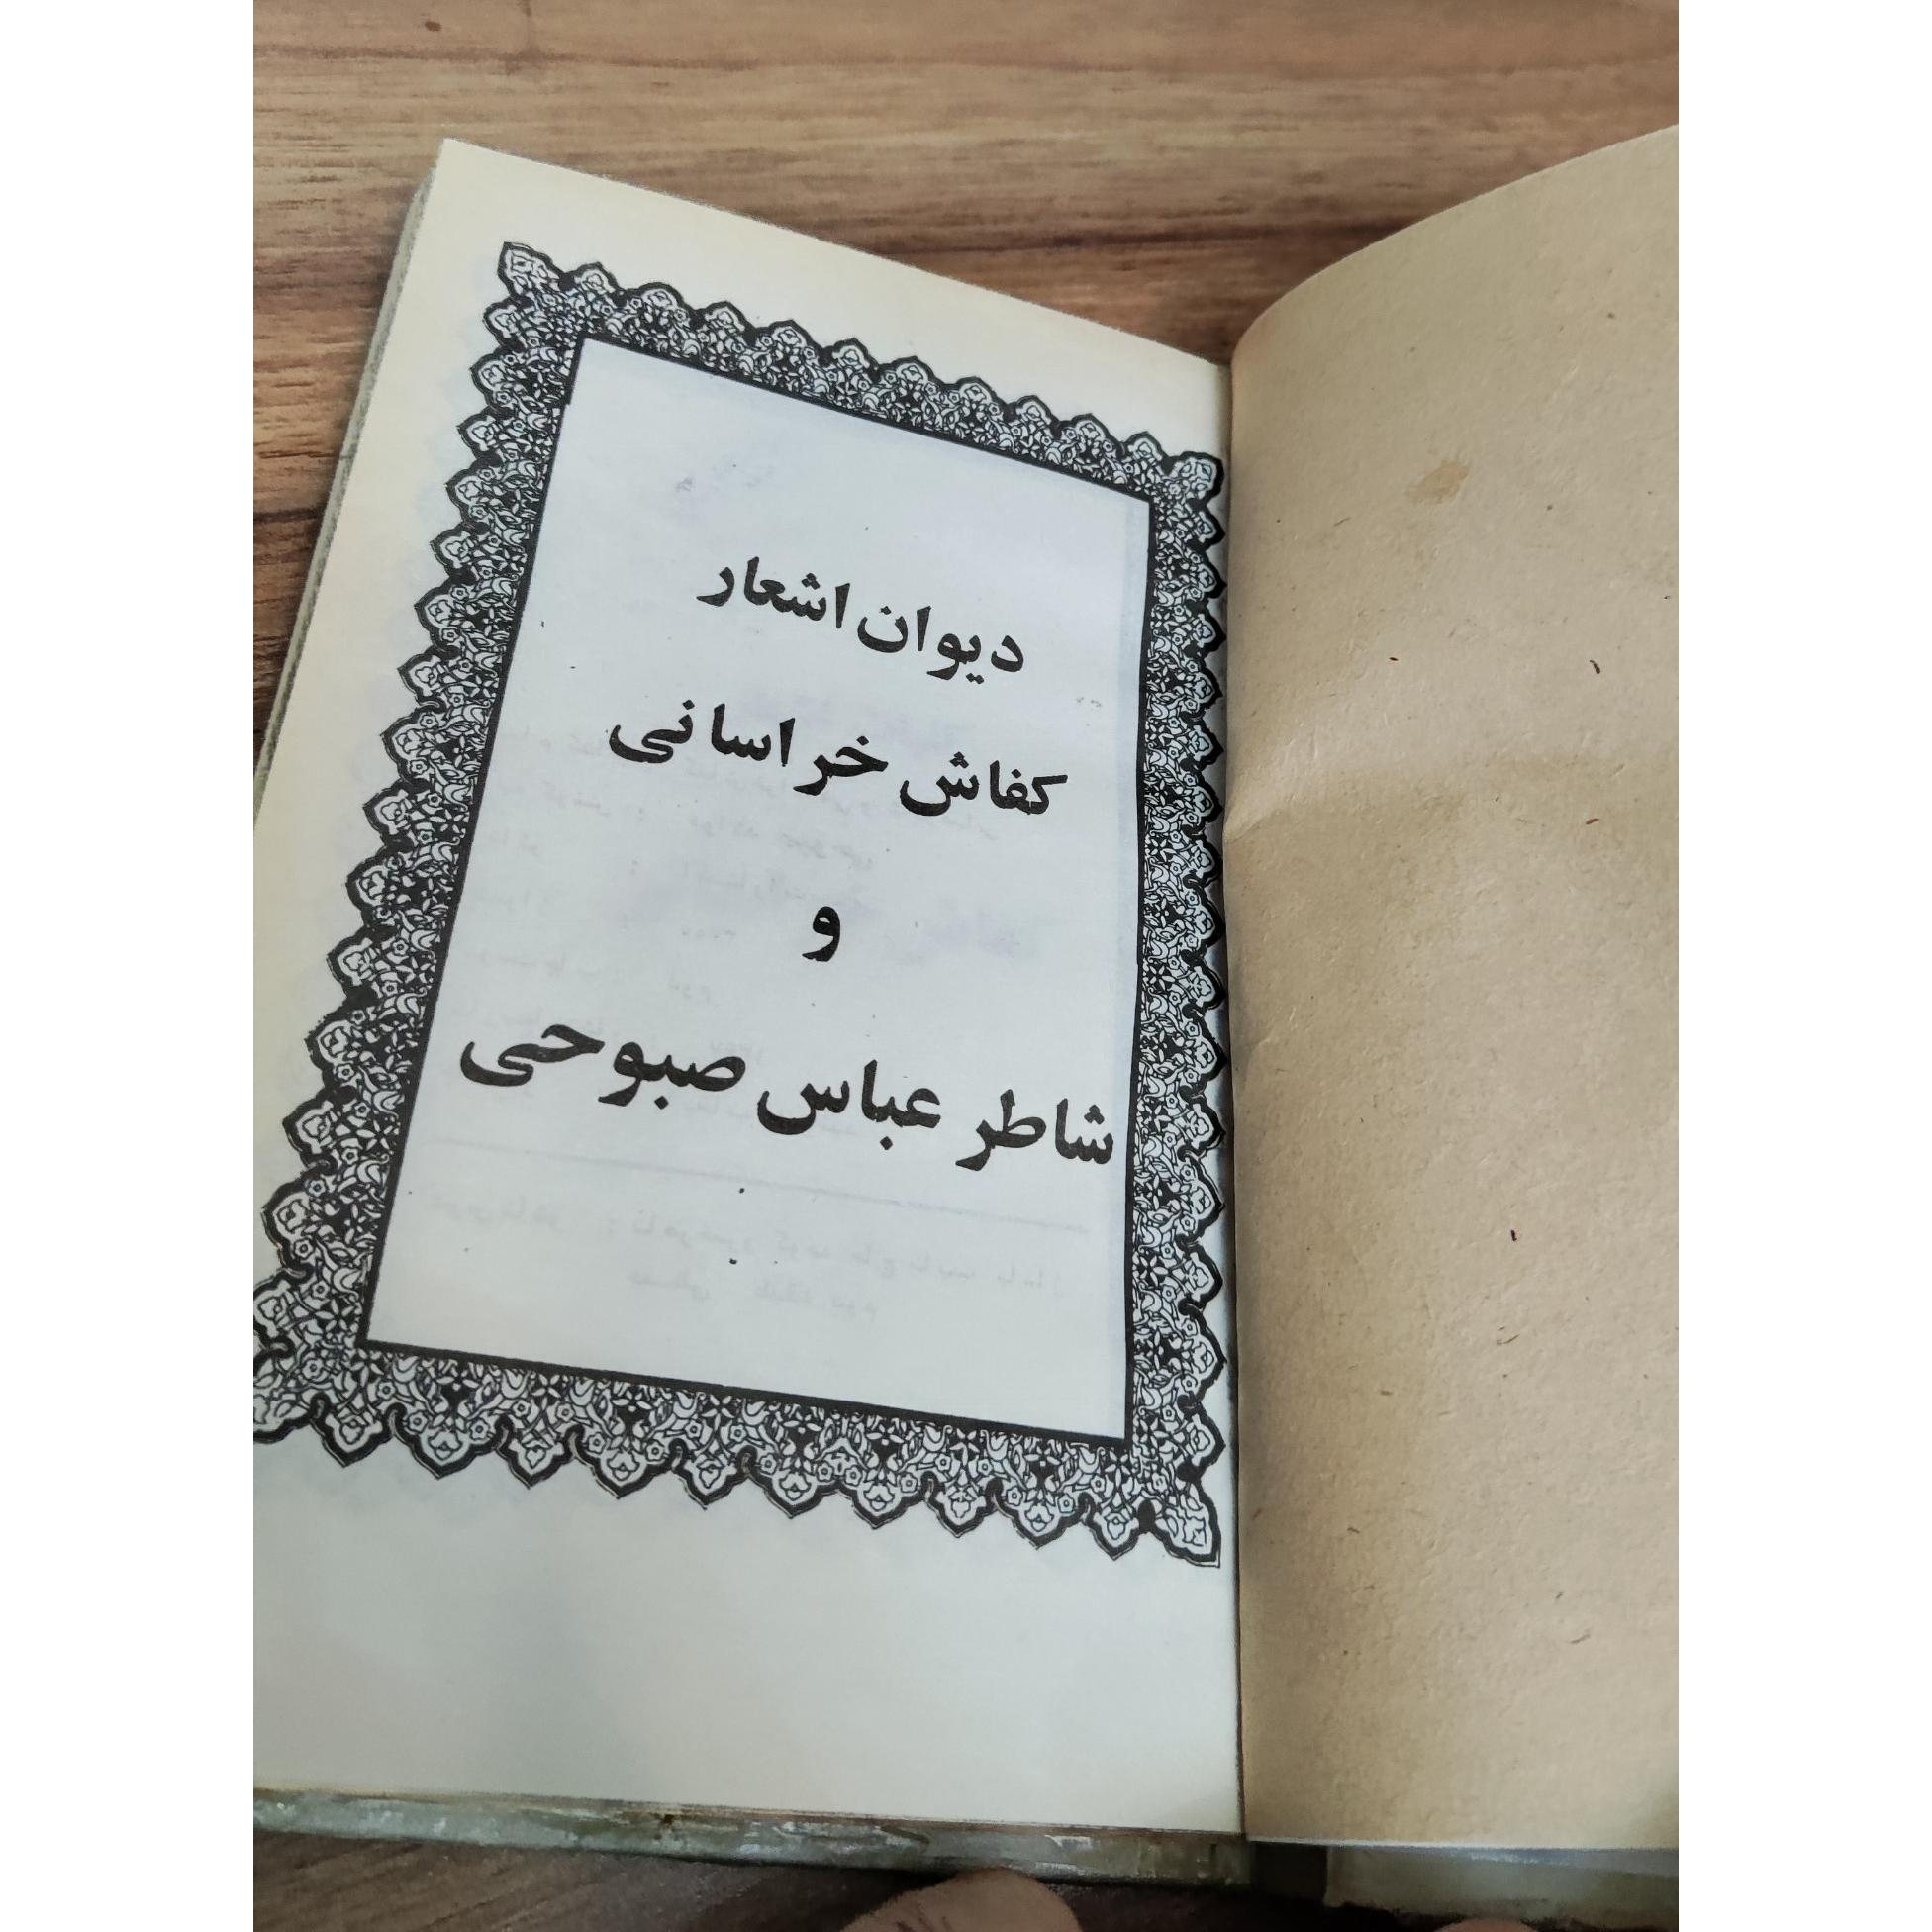 دیوان اشعار
کفاش خراسانی
و
شاطر عباس صبوحی